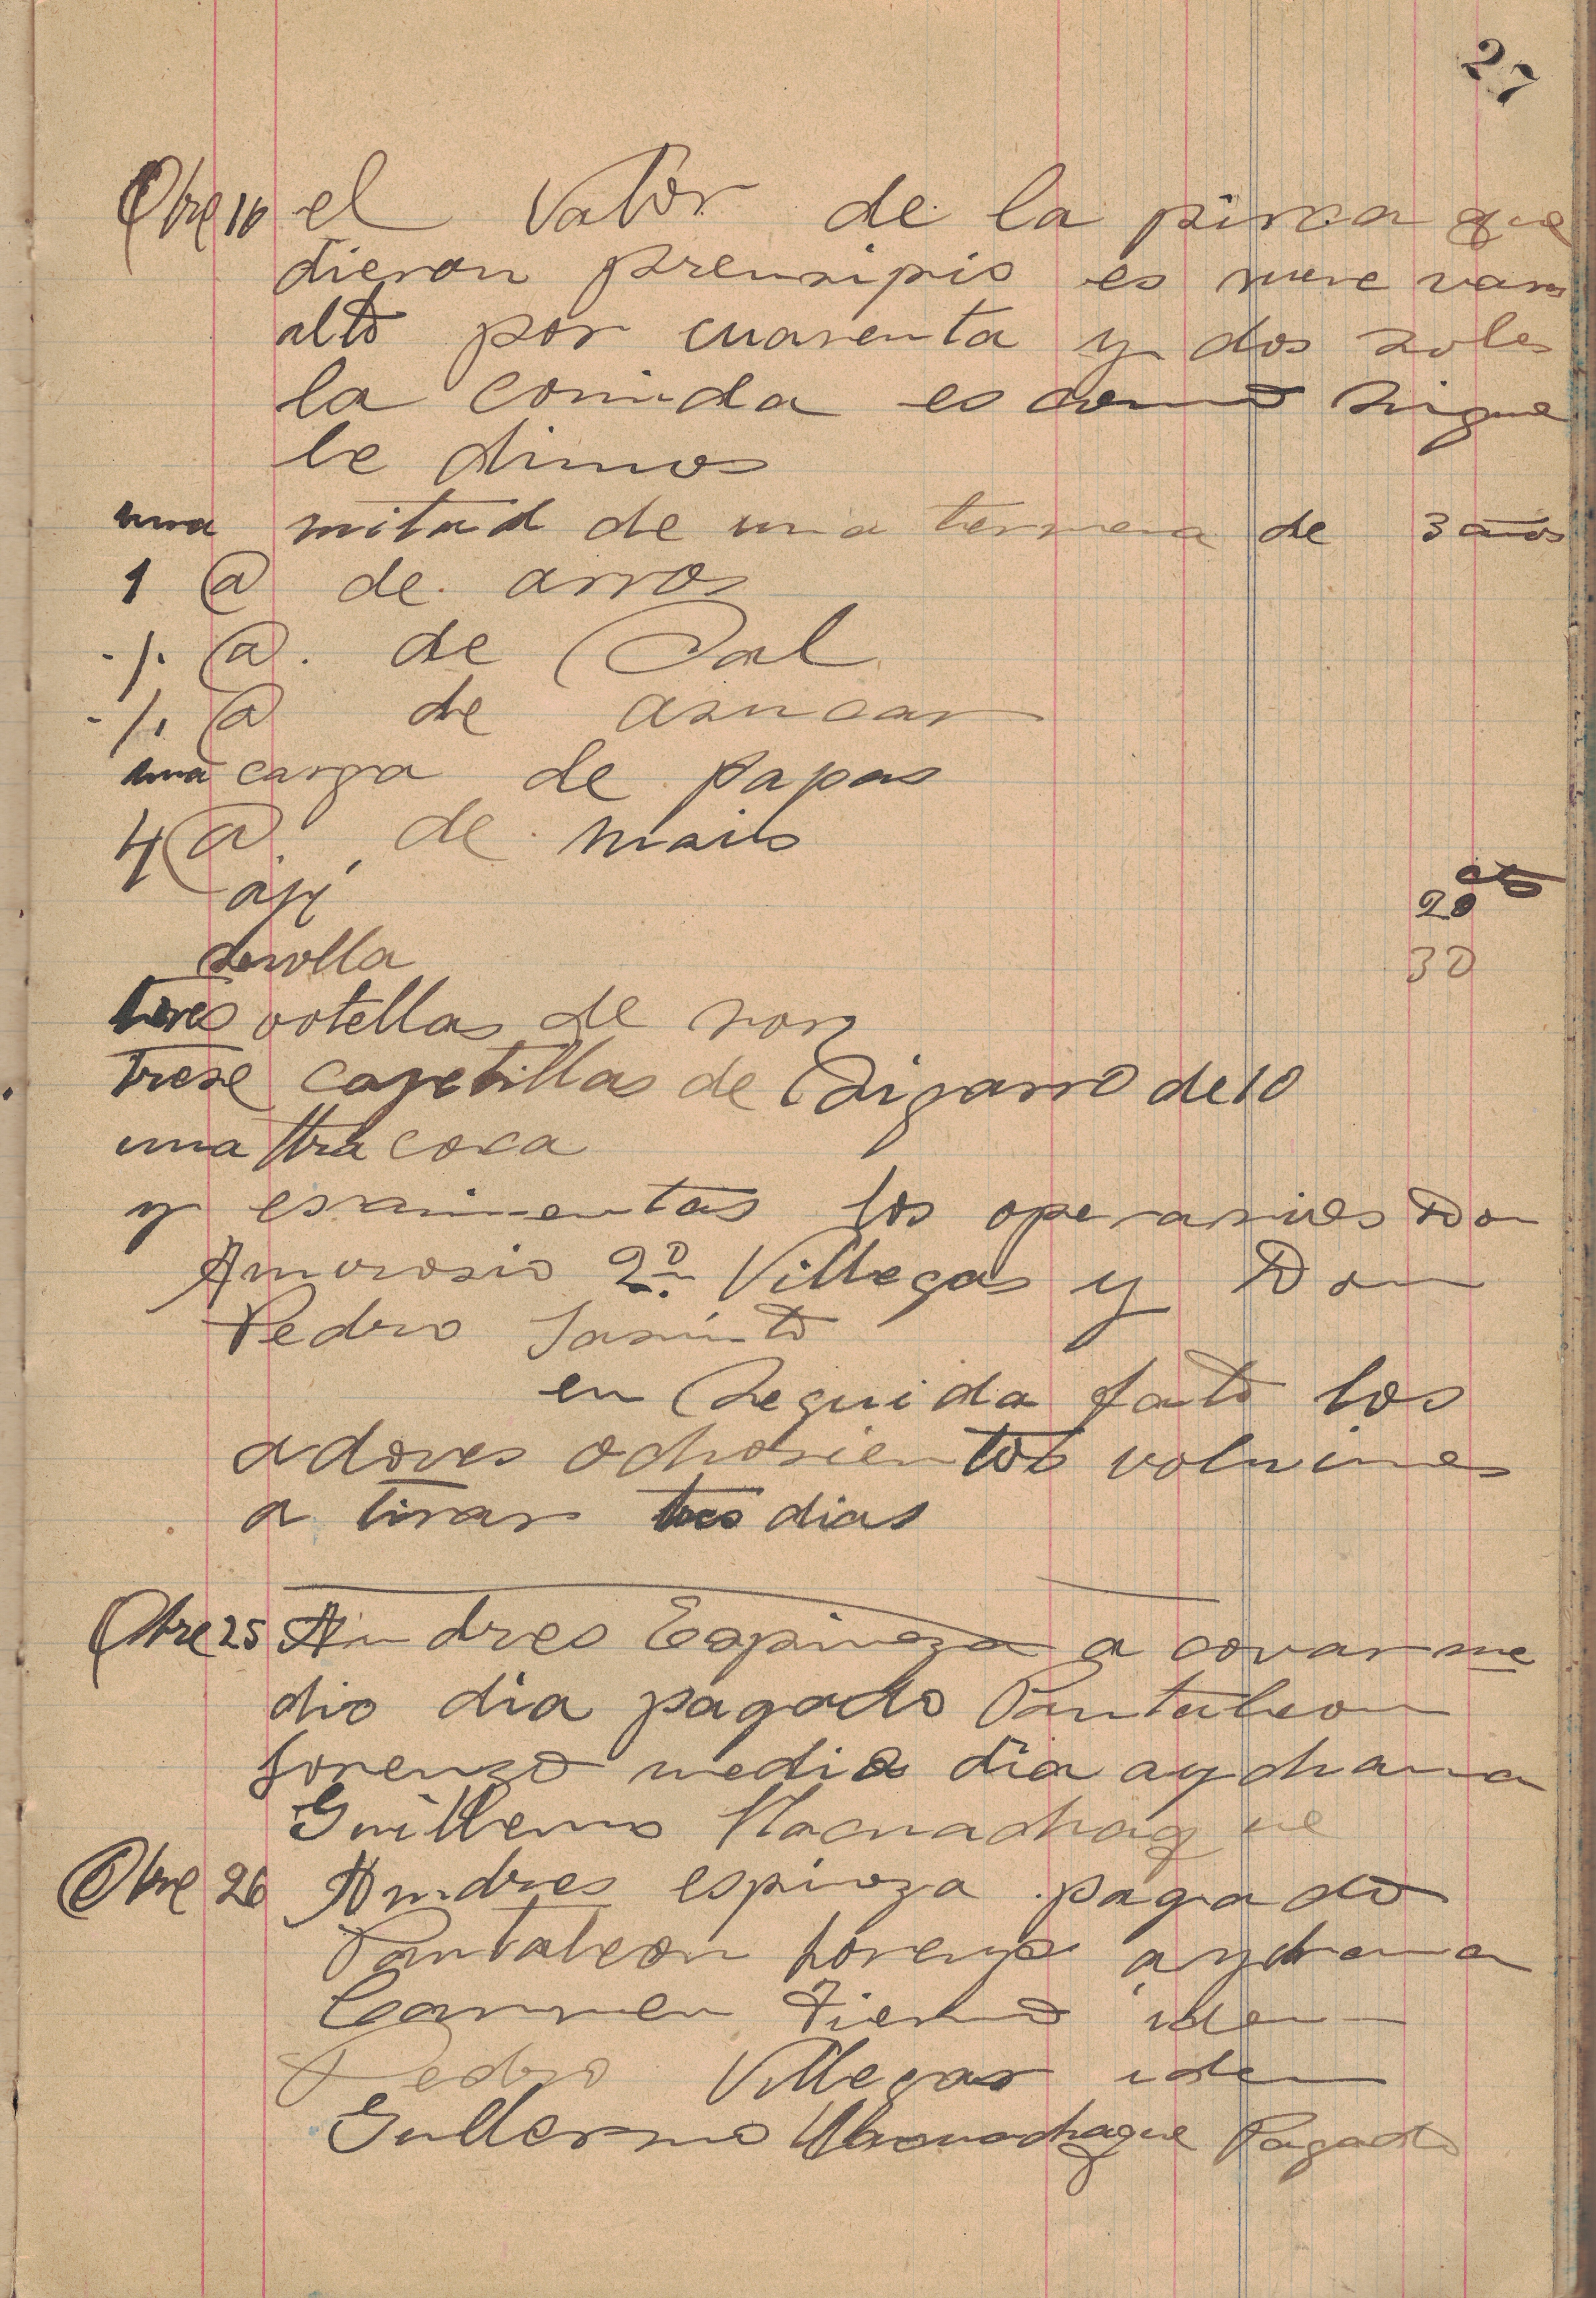 27
Obre 16 el Valor de la pirca que
dieron prensipio es nueve varas
alto por cuarenta y dos soles
la comida es como sigue
le dimos
una mitad de una ternera de 3 años
1 @ de arros
-/. @. de Sal
-/. @ de asucar
una carga de papas
4 @. de mais
aji 20 cts
sevolla 30
tres votellas de ron
trese cajetillas de Sigarro de 10
una ttra coca
y esnimentas los operarios Don
Amvrosio 2º Villegas y Don
Pedro Jasinto
en Seguida falto los
adoves ochosientos volvimos
a tirar tres dias
Obre 25 Andres Espinoza a covar me
dio dia pagado Pantaleon
Lorenzo medio dia aychana
Guillermo Macuachaque
Obre 26 Andres espinoza pagado
Pantaleon Lorenzo aychana
Carmen Fierro iden
Pedro Villegas iden
Gullermo Macuachaque Pagado